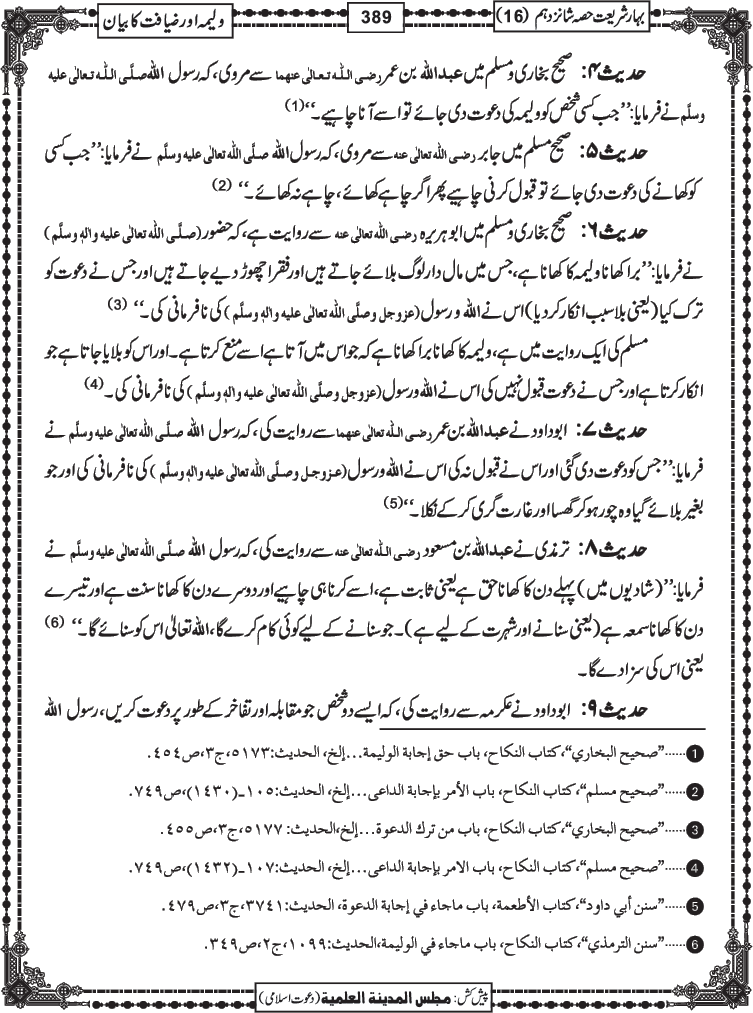 بہارِ شریعت حصہ شانزدہم (16)
389
ولیمہ اور ضیافت کا بیان
حدیث ۴: صحیح بخاری و مسلم میں عبداللہ بن عمر رضی اللہ تعالٰی عنھما سے مروی، کہ رسول اللہ صلَّی اللہ تعالٰی علیہ
وسلَّم نے فرمایا: ’’جب کسی شخص کو ولیمہ کی دعوت دی جائے تو اسے آنا چاہیے۔‘‘(1)
حدیث ۵: صحیح مسلم میں جابر رضی اللہ تعالٰی عنہ سے مروی، کہ رسول اللہ صلَّی اللہ تعالٰی علیہ وسلَّم نے فرمایا: ’’جب کسی
کو کھانے کی دعوت دی جائے تو قبول کرنی چاہیے پھر اگر چاہے کھائے، چاہے نہ کھائے۔‘‘ (2)
حدیث ۶: صحیح بخاری و مسلم میں ابوہریرہ رضی اللہ تعالٰی عنہ سے روایت ہے، کہ حضور (صلَّی اللہ تعالٰی علیہ واٰلہٖ وسلَّم)
نے فرمایا: ’’برا کھانا ولیمہ کا کھانا ہے، جس میں مال دار لوگ بلائے جاتے ہیں اور فقرا چھوڑ دیے جاتے ہیں اور جس نے دعوت کو
ترک کیا (یعنی بلا سبب انکار کر دیا) اس نے اللہ و رسول (عزوجل وصلَّی اللہ تعالٰی علیہ واٰلہٖ وسلَّم) کی نافرمانی کی۔‘‘ (3)
مسلم کی ایک روایت میں ہے، ولیمہ کا کھانا برا کھانا ہے کہ جو اس میں آتا ہے اسے منع کرتا ہے۔ اور اس کو بلایا جاتا ہے جو
انکار کرتا ہے اور جس نے دعوت قبول نہیں کی اس نے اللہ و رسول (عزوجل وصلَّی اللہ تعالٰی علیہ واٰلہٖ وسلَّم) کی نافرمانی کی۔(4)
حدیث ۷: ابو داود نے عبداللہ بن عمر رضی اللہ تعالٰی عنھما سے روایت کی، کہ رسول اللہ صلَّی اللہ تعالٰی علیہ وسلَّم نے
فرمایا: ’’جس کو دعوت دی گئی اور اس نے قبول نہ کی اس نے اللہ و رسول (عزوجل وصلَّی اللہ تعالٰی علیہ واٰلہٖ وسلَّم) کی نافرمانی کی اور جو
بغیر بلائے گیا وہ چور ہو کر گھسا اور غارت گری کر کے نکلا۔‘‘(5)
حدیث ۸: ترمذی نے عبداللہ بن مسعود رضی اللہ تعالٰی عنہ سے روایت کی، کہ رسول اللہ صلَّی اللہ تعالٰی علیہ وسلَّم نے
فرمایا: ’’(شادیوں میں) پہلے دن کا کھانا حق ہے یعنی ثابت ہے، اسے کرنا ہی چاہیے اور دوسرے دن کا کھانا سنت ہے اور تیسرے
دن کا کھانا سمعہ ہے (یعنی سنانے اور شہرت کے لیے ہے)۔ جو سنانے کے لیے کوئی کام کرے گا، اللہ تعالیٰ اس کو سنائے گا۔‘‘ (6)
یعنی اس کی سزا دے گا۔
حدیث ۹: ابو داود نے عکرمہ سے روایت کی، کہ ایسے دو شخص جو مقابلہ اور تفاخر کے طور پر دعوت کریں، رسول اللہ
1 ......”صحیح البخاري“، کتاب النکاح، باب حق إجابة الولیمة...إلخ، الحدیث:٥١٧٣،ج٣،ص٤٥٤.
2 ......”صحیح مسلم“، کتاب النکاح، باب الأمر بإجابة الداعی...إلخ، الحدیث:١٠٥۔(١٤٣٠)،ص٧٤٩.
3 ......”صحیح البخاري“، کتاب النکاح، باب من ترك الدعوة...إلخ،الحدیث: ٥١٧٧،ج٣،ص٤٥٥.
4 ......”صحیح مسلم“، کتاب النکاح، باب الامر بإجابة الداعی...إلخ، الحدیث:١٠٧۔(١٤٣٢)،ص٧٤٩.
5 ......”سنن أبي داود“، کتاب الأطعمة، باب ماجاء في إجابة الدعوة، الحدیث:٣٧٤١،ج٣،ص٤٧٩.
6 ......”سنن الترمذي“، کتاب النکاح، باب ماجاء في الولیمة،الحدیث:١٠٩٩،ج٢،ص٣٤٩.
پیش کش: مجلس المدینة العلمیة (دعوت اسلامی)